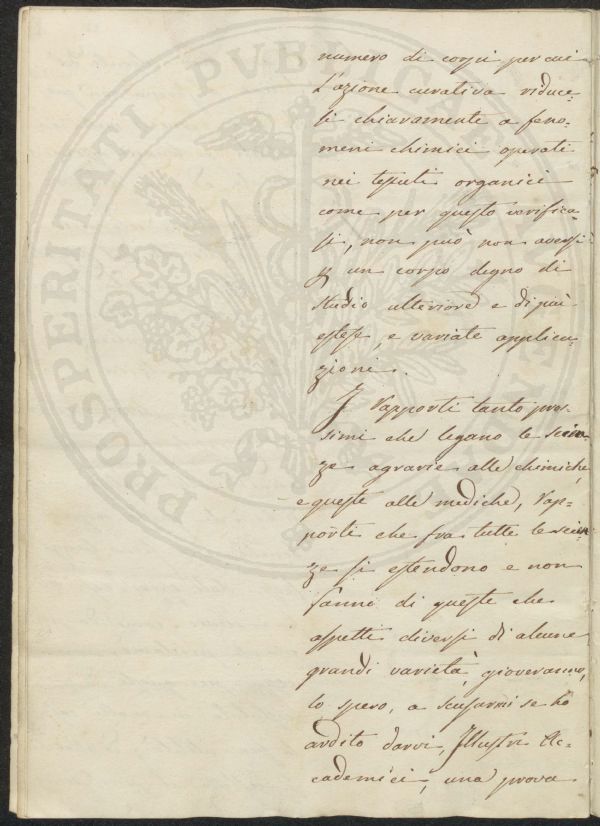 numero di corpi per cui
l'azione curativa riduce-
si chiaramente a feno-
meni chimici operati
nei tessuti organici
come per questo verifica-
si, non può non aversi
p un corpo degno di
studio ulteriore e di più
estese, e variate applica-
zioni.
I rapporti tanto pros-
simi che legano le scien-
ze agrarie alle chimiche,
e queste alle mediche, rap-
porti che fra tutte le scien-
ze si estendono e non
fanno di queste che
aspetti diversi di alcune
grandi varietà, gioveranno,
lo spero, a scusarmi se ho
ardito darvi, Illustri Ac-
cademici, una prova
PROSPERITATI PVBLICAE AVGENDAE